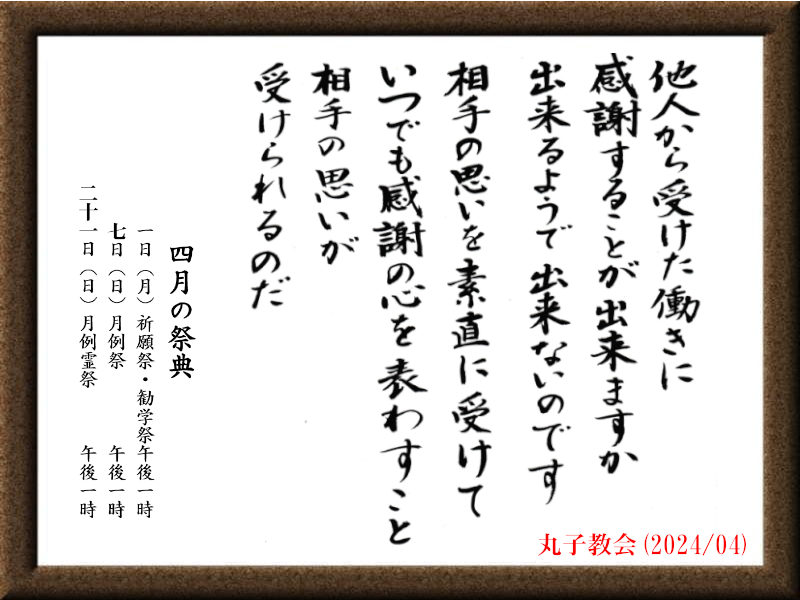 他人から受けた働きに
感謝することが出来ますか
出来るようで出来ないのです
相手の思いを素直に受けて
いつでも感謝の心を表わすこと
相手の思いが
受けられるのだ
四月の祭典
一日（月）祈願祭・勧学祭午後一時
七日（日）月例祭 午後一時
二十一日（日）月例霊祭 午後一時
丸子教会(2024/04)